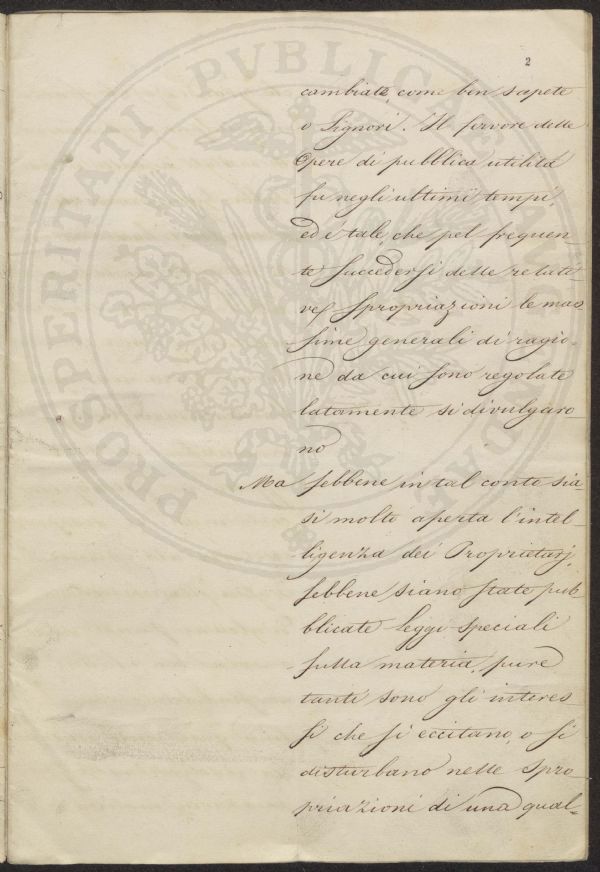 2
cambiate, come ben sapete
o Signori. Il fervore delle
Opere di pubblica utilità
fu negli ultimi tempi,
ed é tale, che pel frequen-
te succedersi delle relati-
ve spropriazioni le mas
sime generali di ragio-
ne da cui sono regolate
latamente si divulgaro
no
Ma sebbene in tal conto sia-
si molto aperta l'intel-
ligenza dei Proprietarj,
sebbene siano state pub-
blicate leggi speciali
sulla materia, pure
tanti sono gli interes-
si che si eccitano, o si
disturbano nelle spro
priazioni di una qual-
PROSPERITATI PVBLICAE AVGENDAE